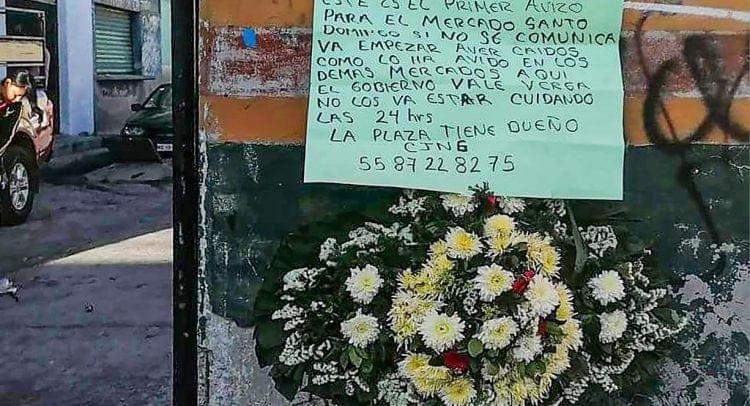 ESTE ES EL PRIMER AVIZO
PARA EL MERCADO SANTO
DOMINGO SI NO SE COMUNICA
VA EMPEZAR AVER CAIDOS
COMO LO HA AVIDO EN LOS
DEMAS MERCADOS AQUI
EL GOBIERNO VALE VERGA
NO LOS VA ESTAR CUIDANDO
LAS 24 hrs
LA PLAZA TIENE DUEÑO
CJNG
55 87 22 82 75